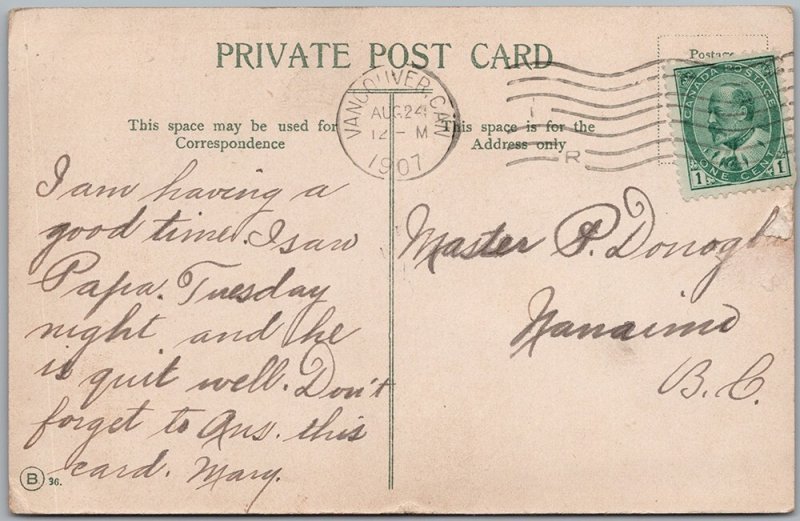 PRIVATE POST CARD
Postage
CANADA POSTAGE
1 ONE CENT 1
VANCOUVER, CAN
AUG 24
12 - M
1907
R
This space may be used for
Correspondence
This space is for the
Address only
I am having a
good time. I saw
Papa. Tuesday
night and he
is quit well. Don't
forget to Ans. this
card. Mary.
Master P. Donogh
Nanaimo
B. C.
B 36.